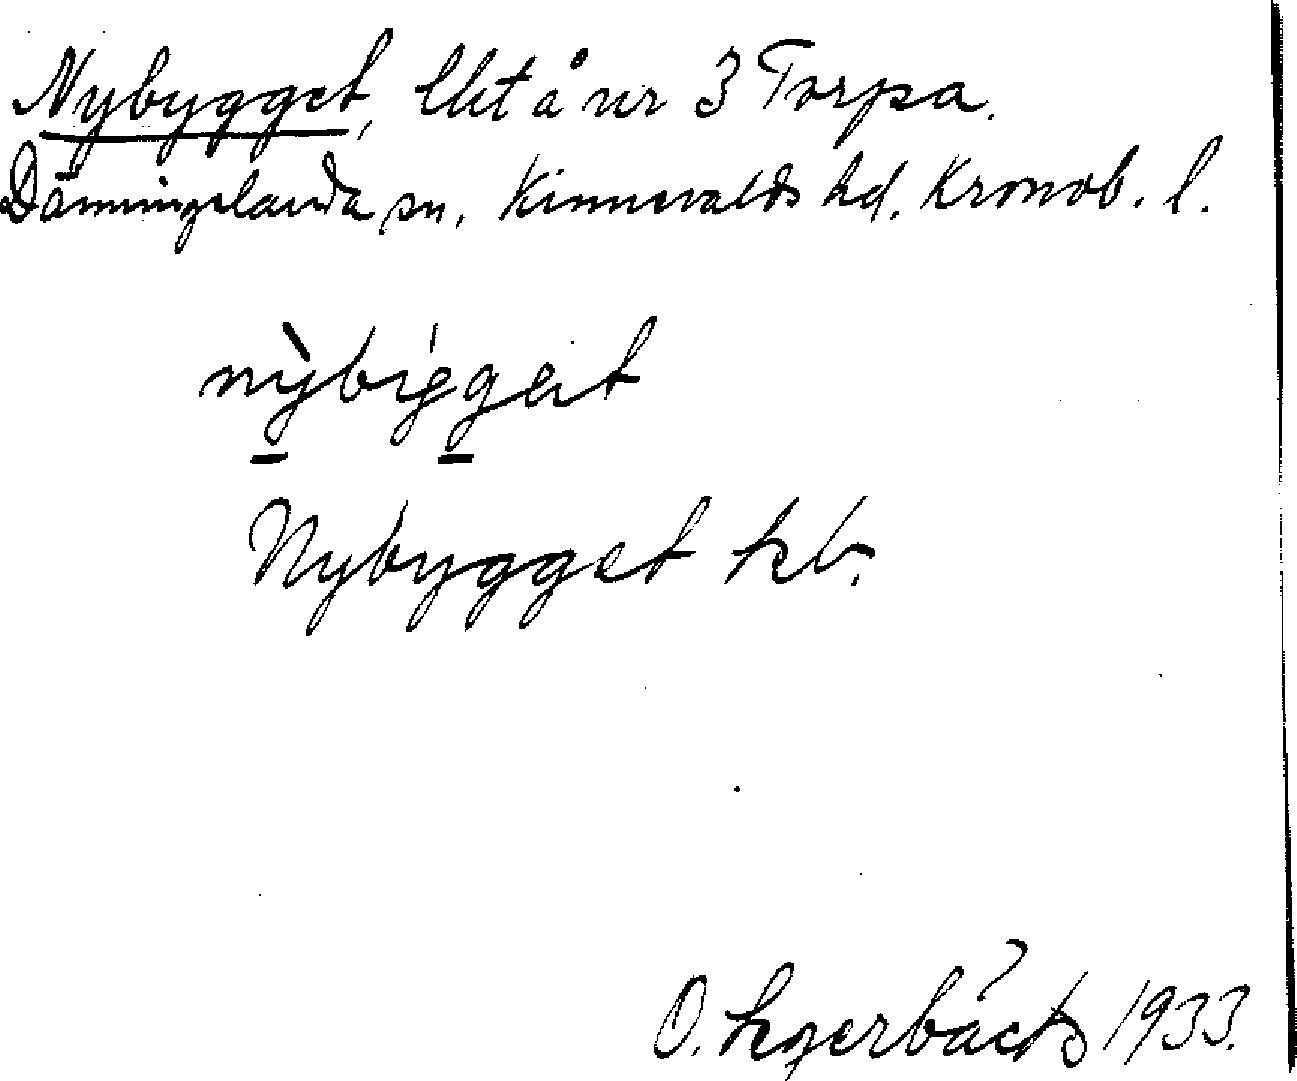 Nybygget, lht å nr 3 Torpa.
Dänningelanda sn. Kinnevalds hd. Kronob. l.
nỳbíggət
Nybygget kb.
O. 1933.